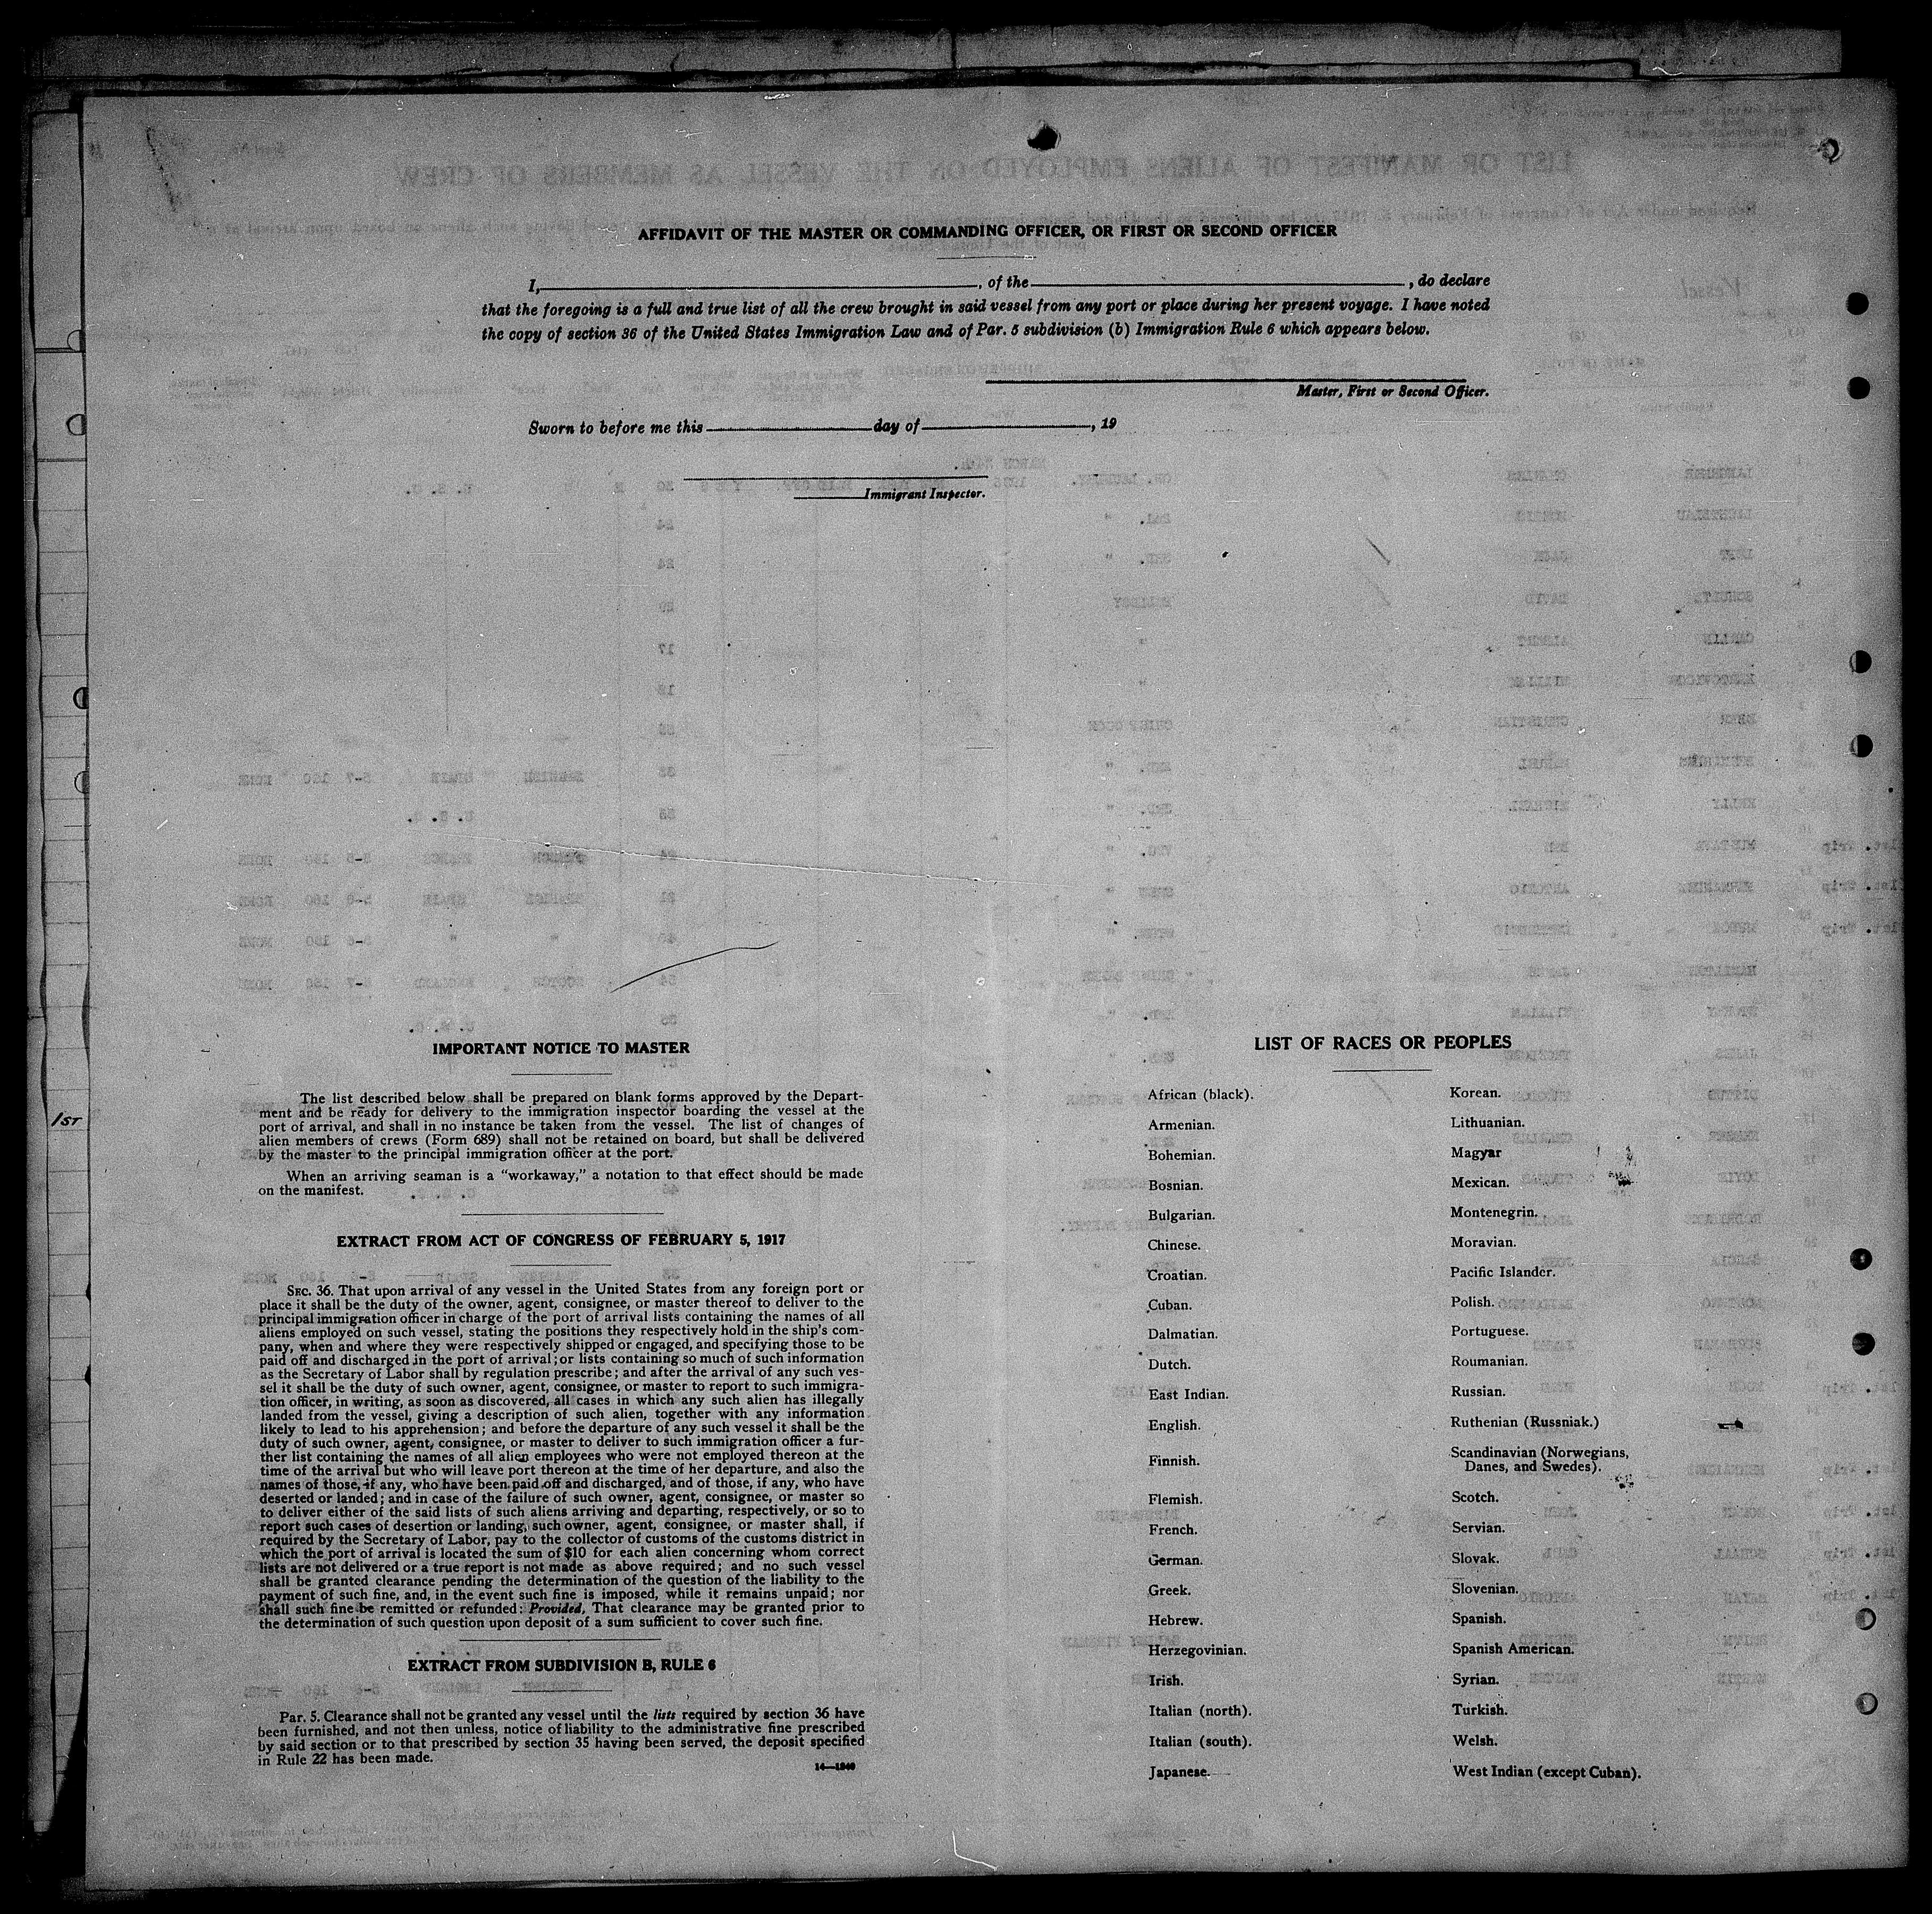 AFFIDAVIT OF THE MASTER OR COMMANDING OFFICER, OR FIRST OR SECOND OFFICER
I, , of the , do declare
that the foregoing is a full and true list of all the crew brought in said vessel from any port or place during her present voyage. I have noted
the copy of section 36 of the United States Immigration Law and of Par. 5 subdivision (b) Immigration Rule 6 which appears below.
Master, First or Second Officer.
Sworn to before me this day of , 19
Immigrant Inspector.
1ST
IMPORTANT NOTICE TO MASTER
The list described below shall be prepared on blank forms approved by the Depart-
ment and be ready for delivery to the immigration inspector boarding the vessel at the
port of arrival, and shall in no instance be taken from the vessel. The list of changes of
alien members of crews (Form 689) shall not be retained on board, but shall be delivered
by the master to the principal immigration officer at the port.
When an arriving seaman is a "workaway," a notation to that effect should be made
on the manifest.
EXTRACT FROM ACT OF CONGRESS OF FEBRUARY 5, 1917
SEC. 36. That upon arrival of any vessel in the United States from any foreign port or
place it shall be the duty of the owner, agent, consignee, or master thereof to deliver to the
principal immigration officer in charge of the port of arrival lists containing the names of all
aliens employed on such vessel, stating the positions they respectively hold in the ship's com-
pany, when and where they were respectively shipped or engaged, and specifying those to be
paid off and discharged in the port of arrival; or lists containing so much of such information
as the Secretary of Labor shall by regulation prescribe; and after the arrival of any such ves-
sel it shall be the duty of such owner, agent, consignee, or master to report to such immigra-
tion officer, in writing, as soon as discovered, all cases in which any such alien has illegally
landed from the vessel, giving a description of such alien, together with any information
likely to lead to his apprehension; and before the departure of any such vessel it shall be the
duty of such owner, agent, consignee, or master to deliver to such immigration officer a fur-
ther list containing the names of all alien employees who were not employed thereon at the
time of the arrival but who will leave port thereon at the time of her departure, and also the
names of those, if any, who have been paid off and discharged, and of those, if any, who have
deserted or landed; and in case of the failure of such owner, agent, consignee, or master so
to deliver either of the said lists of such aliens arriving and departing, respectively, or so to
report such cases of desertion or landing, such owner, agent, consignee, or master shall, if
required by the Secretary of Labor, pay to the collector of customs of the customs district in
which the port of arrival is located the sum of $10 for each alien concerning whom correct
lists are not delivered or a true report is not made as above required; and no such vessel
shall be granted clearance pending the determination of the question of the liability to the
payment of such fine, and, in the event such fine is imposed, while it remains unpaid; nor
shall such fine be remitted or refunded: Provided, That clearance may be granted prior to
the determination of such question upon deposit of a sum sufficient to cover such fine.
EXTRACT FROM SUBDIVISION B, RULE 6
Par. 5. Clearance shall not be granted any vessel until the lists required by section 36 have
been furnished, and not then unless, notice of liability to the administrative fine prescribed
by said section or to that prescribed by section 35 having been served, the deposit specified
in Rule 22 has been made.
14—1240
LIST OF RACES OR PEOPLES
African (black).
Armenian.
Bohemian.
Bosnian.
Bulgarian.
Chinese.
Croatian.
Cuban.
Dalmatian.
Dutch.
East Indian.
English.
Finnish.
Flemish.
French.
German.
Greek.
Hebrew.
Herzegovinian.
Irish.
Italian (north).
Italian (south).
Japanese.
Korean.
Lithuanian.
Magyar
Mexican.
Montenegrin.
Moravian.
Pacific Islander.
Polish.
Portuguese.
Roumanian.
Russian.
Ruthenian (Russniak.)
Scandinavian (Norwegians,
Danes, and Swedes).
Scotch.
Servian.
Slovak.
Slovenian.
Spanish.
Spanish American.
Syrian.
Turkish.
Welsh.
West Indian (except Cuban).